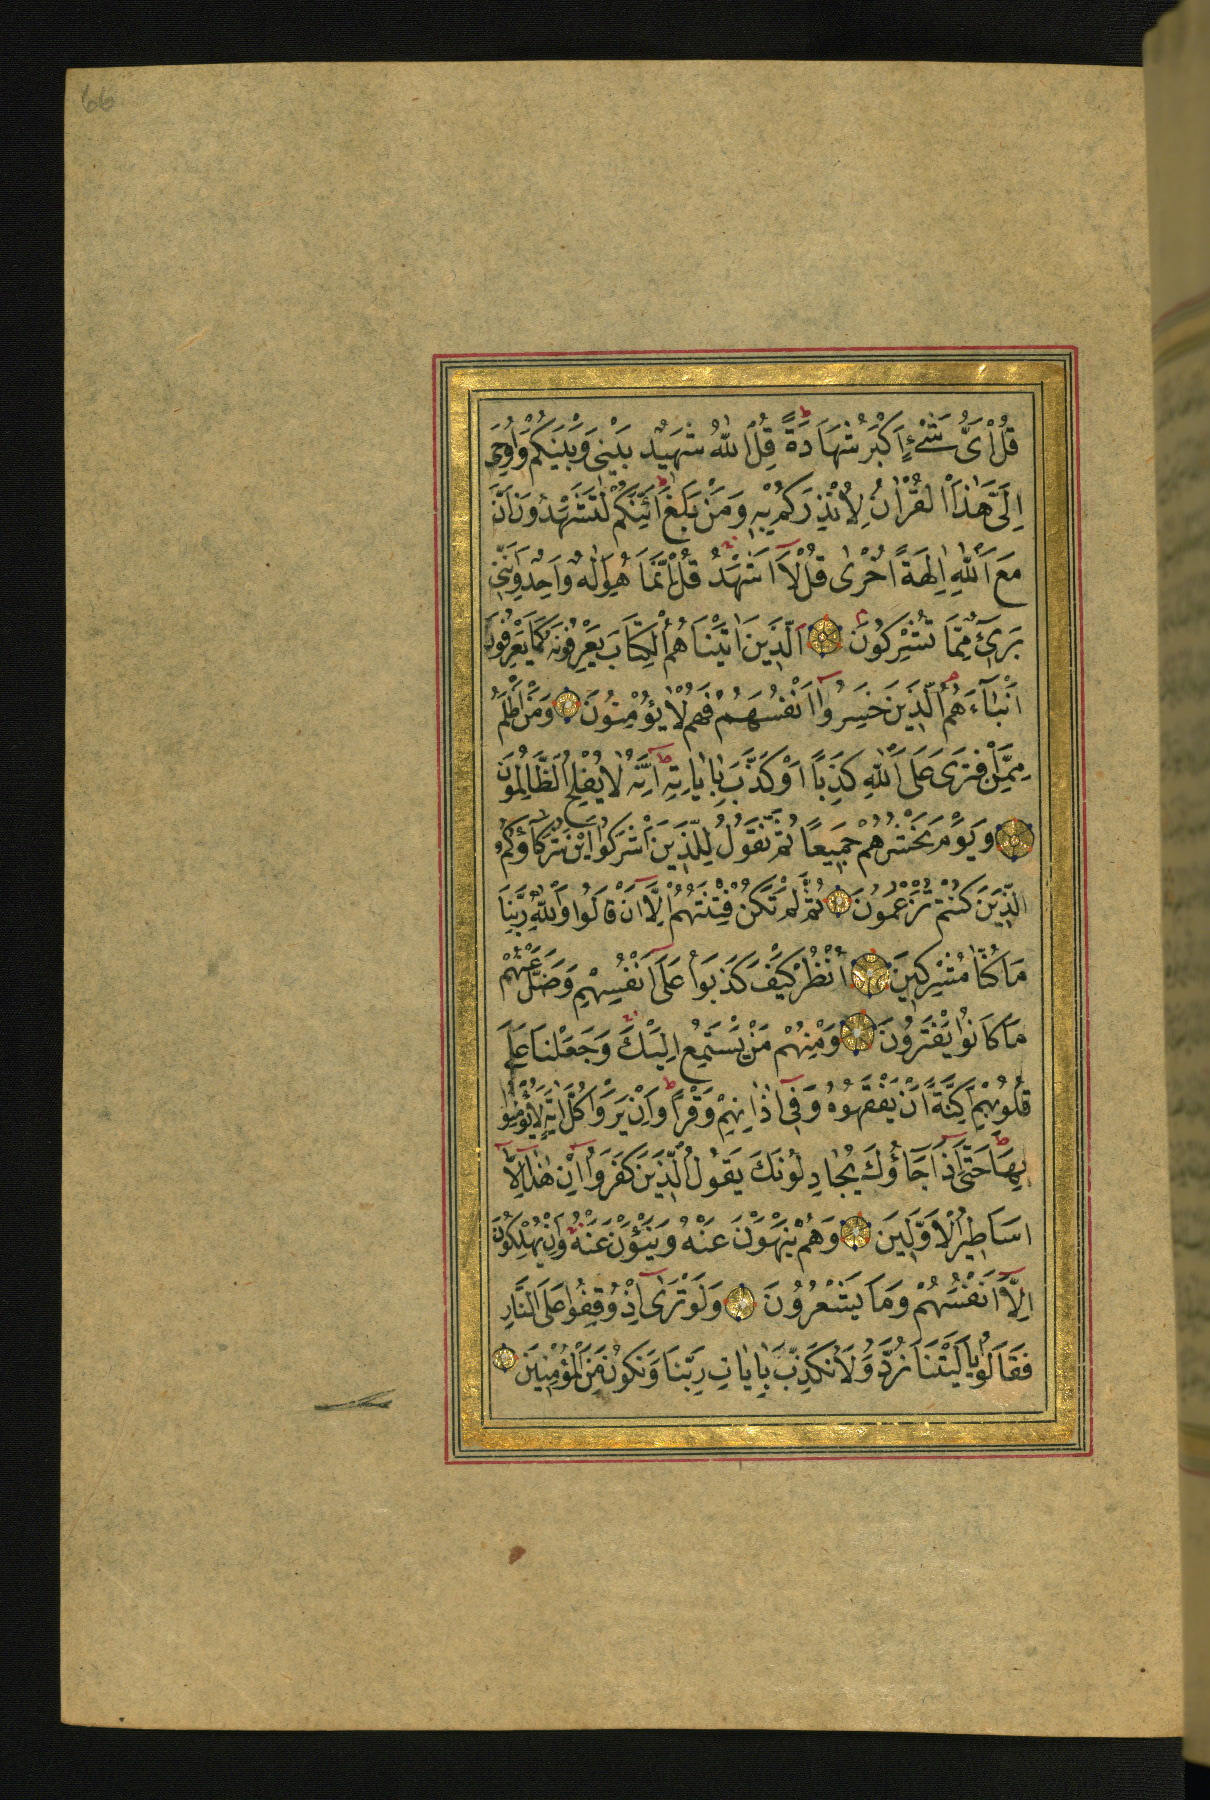 66
قُلْ اَىُّ شَىْءٍ اَكْبَرُ شَهَادَةً ط قُلِ اللّٰهُ شَهِيْدٌ بَيْنِى وَبَيْنَكُمْ وَاُوحِىَ
اِلَىَّ هٰذَا الْقُرْاٰنُ لِاُنْذِرَكُمْ بِهٖ وَمَنْ بَلَغَ ط اَئِنَّكُمْ لَتَشْهَدُونَ اَنَّ
مَعَ اللّٰهِ اٰلِهَةً اُخْرٰى قُلْ لَآ اَشْهَدُ قُلْ اِنَّمَا هُوَ اِلٰهٌ وَاحِدٌ وَاِنَّنِى
بَرِىءٌ مِمَّا تُشْرِكُونَ اَلَّذِينَ اٰتَيْنَاهُمُ الْكِتَابَ يَعْرِفُونَهُ كَمَا يَعْرِفُونَ
اَبْنَآءَهُمُ م الَّذِينَ خَسِرُوآ اَنْفُسَهُمْ فَهُمْ لَا يُؤْمِنُونَ وَمَنْ اَظْلَمُ
مِمَّنِ افْتَرٰى عَلَى اللّٰهِ كَذِبًا اَوْ كَذَّبَ بِاٰيَاتِهٖ ط اِنَّهُ لَا يُفْلِحُ الظَّالِمُونَ
وَيَوْمَ نَحْشُرُهُمْ جَمِيعًا ثُمَّ نَقُولُ لِلَّذِينَ اَشْرَكُوآ اَيْنَ شُرَكَآؤُكُمُ
الَّذِينَ كُنْتُمْ تَزْعُمُونَ ثُمَّ لَمْ تَكُنْ فِتْنَتُهُمْ اِلَّآ اَنْ قَالُوا وَاللّٰهِ رَبِّنَا
مَا كُنَّا مُشْرِكِينَ اُنْظُرْ كَيْفَ كَذَبُوا عَلٰٓى اَنْفُسِهِمْ وَضَلَّ عَنْهُمْ
مَا كَانُوا يَفْتَرُونَ وَمِنْهُمْ مَنْ يَسْتَمِعُ اِلَيْكَ وَجَعَلْنَا عَلٰى
قُلُوبِهِمْ اَكِنَّةً اَنْ يَفْقَهُوهُ وَفِىٓ اٰذَانِهِمْ وَقْرًا ط وَاِنْ يَرَوْا كُلَّ اٰيَةٍ لَا يُؤْمِنُوا
بِهَا ط حَتّٰىٓ اِذَا جَآؤُكَ يُجَادِلُونَكَ يَقُولُ الَّذِينَ كَفَرُوآ اِنْ هٰذَآ اِلَّآ
اَسَاطِيرُ الْاَوَّلِينَ وَهُمْ يَنْهَوْنَ عَنْهُ وَيَنْئَوْنَ عَنْهُ وَاِنْ يُهْلِكُونَ
اِلَّآ اَنْفُسَهُمْ وَمَا يَشْعُرُونَ وَلَوْ تَرٰىٓ اِذْ وُقِفُوا عَلَى النَّارِ
فَقَالُوا يَالَيْتَنَا نُرَدُّ وَلَا نُكَذِّبَ بِاٰيَاتِ رَبِّنَا وَنَكُونَ مِنَ الْمُؤْمِنِينَ